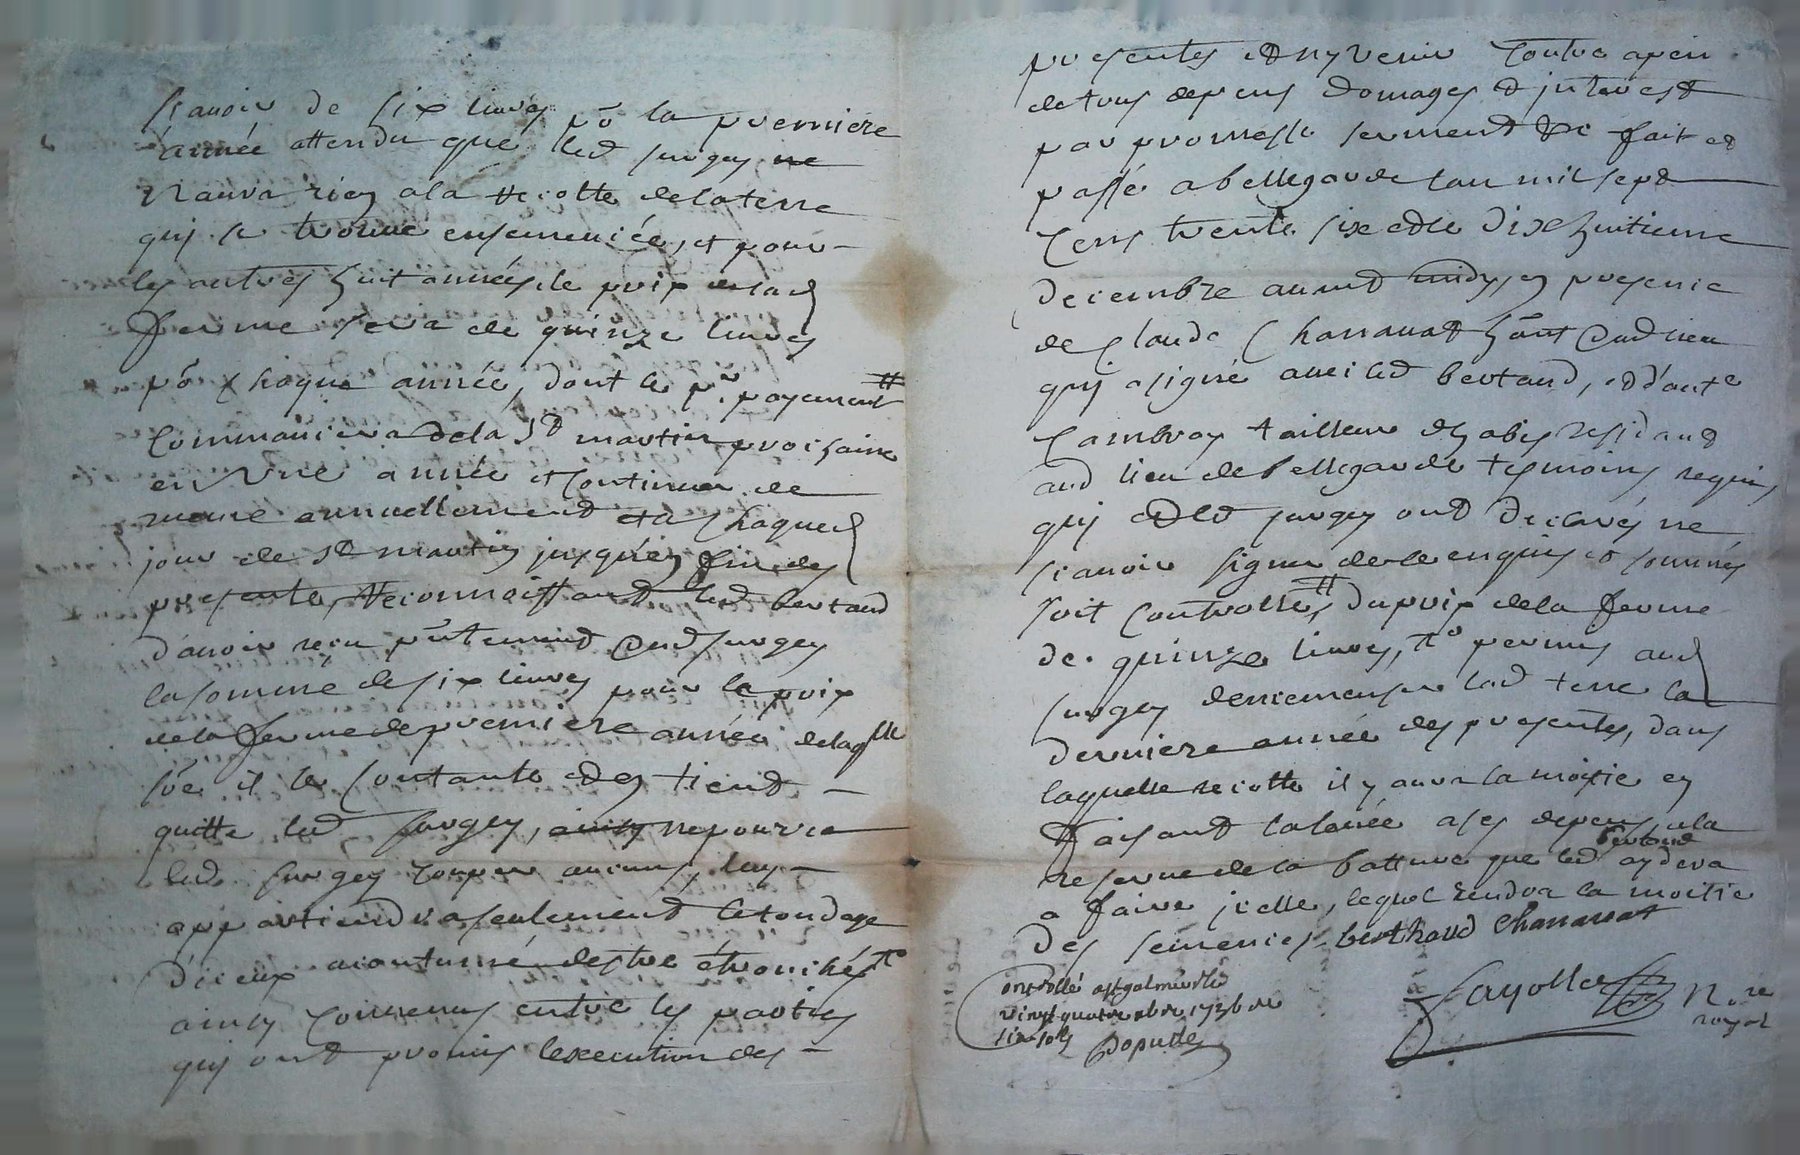 scavoir de six livres po la premiere
année attendu que led surgey ne
naura rien a la recolte de la terre
qui se trouve ensemencée, et pour
les autres huit années le prix de lad
ferme sera de quinze livres
po chaque année, dont le pr. payement
commancera de la st martin prochaine
en une année et continuer de
meme annuellement et a chaqued
jour de st martin jusquen fin des
presente, reconnoissant led bertaud
d'avoir receu pntement dud surgey
la somme de six livres pour le prix
de la ferme de premiere année de laqlle
sôe il se contante et en tient
quitte led surgey, ainsy ne pourra
led surgey couper aucuns, luy
appartiendra seulement le tondage
d'iceux acoutumé destre étronchés
ainsy convenus entre les parties
qui ont promis lexecution des
presentes et ny venir contre a pein
de tous depens domages et interest
par promesse serment &c fait et
passé a bellegarde lan mil sept
cens trente six et le dix huitieme
decembre avant midy, en presence
de Claude Chassanat hant dud lieu
qui a signé avec led bertaud, et d'ante
Cambray tailleur dhabis residant
aud lieu de bellegarde tesmoins requis
qui et led surgey ont declarés ne
scavoir signer de ce enquis et sommés
soit controllé, du prix de la ferme
de quinze livres, permis aud
surgey densemenser lad terre la
derniere année des presentes, dans
laquelle recolte il y aura la moitie en
faisant la levée a ses depens, a la
reserve de la batture que led bertaud aydera
a faire icelle, lequel rendra la moitie
des semences. berthaud Chassanat
Controllé a st galmier le
vingt quatre xbre 1736 Re
six sols
Dopulle
Fayolle Nre
royal